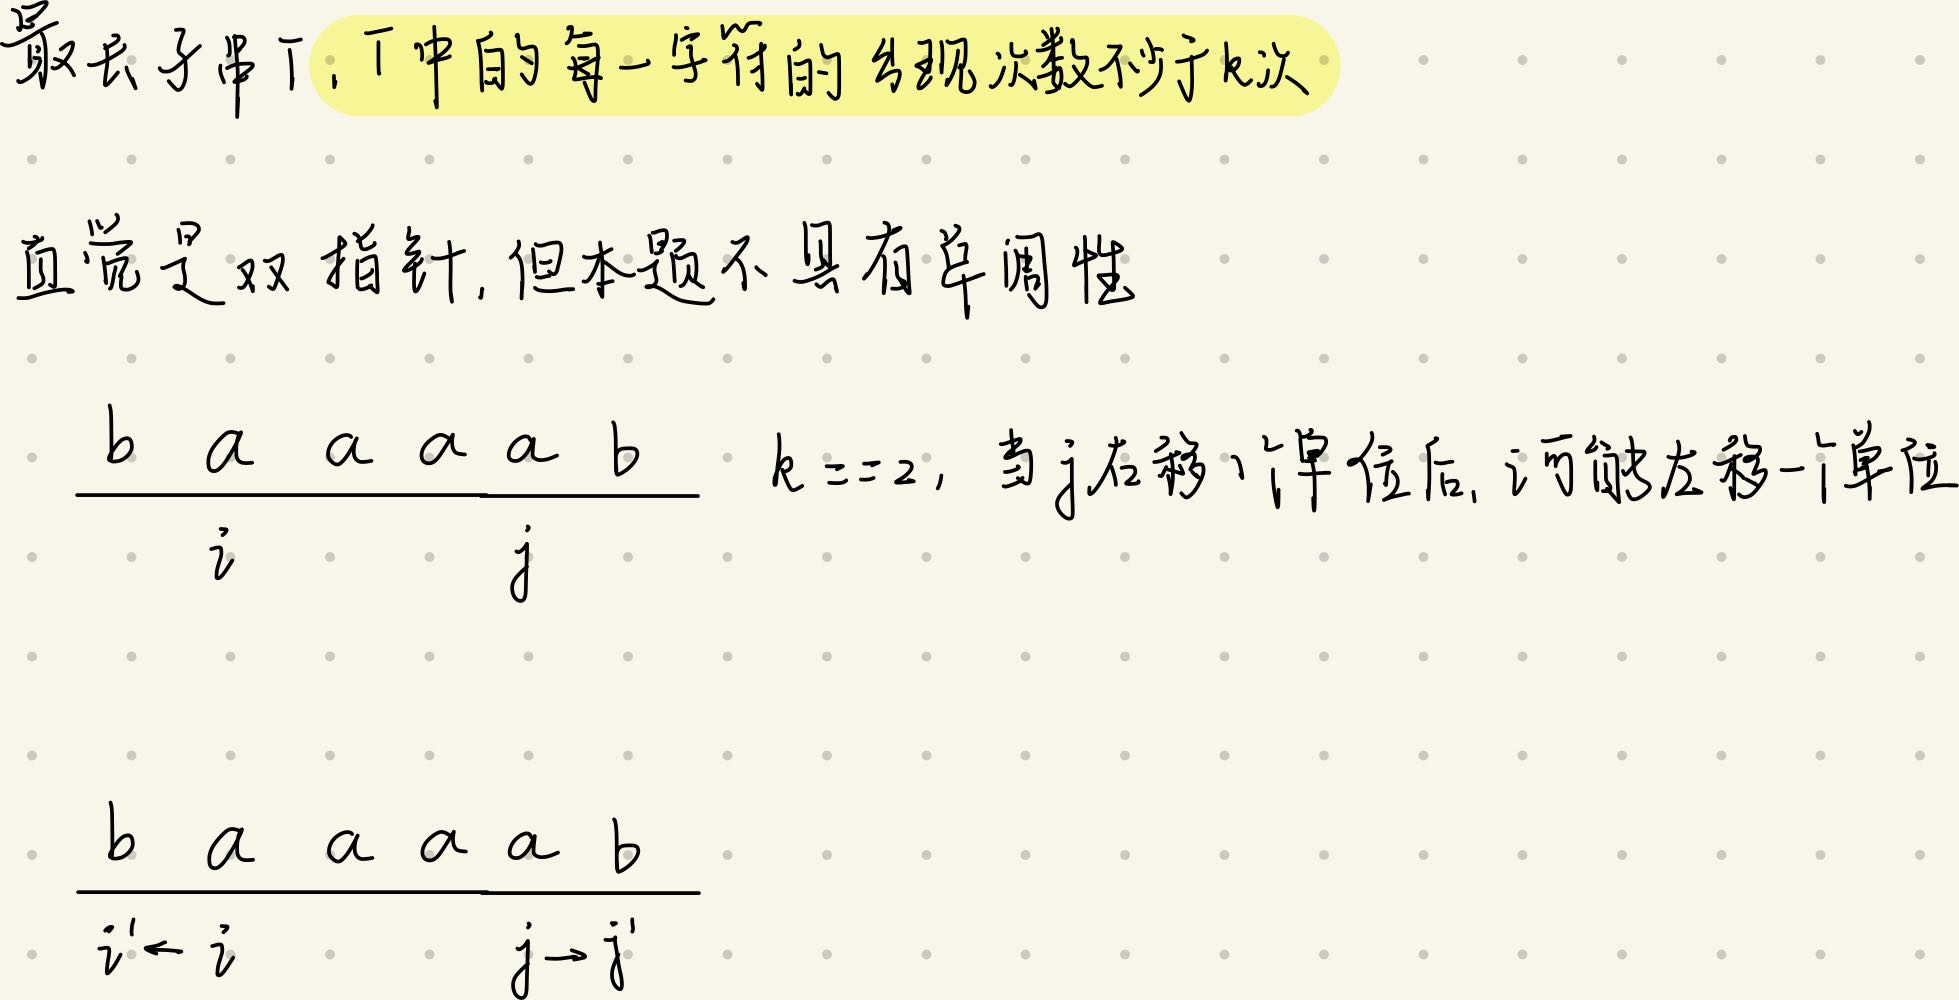 最长子串T,T中的每一字符的出现次数不少于k次
直觉是双指针,但本题不具有单调性
b a a a a b k==2,当j右移1个单位后,i可能左移一个单位
i j
b a a a a b
i'← i j→j'